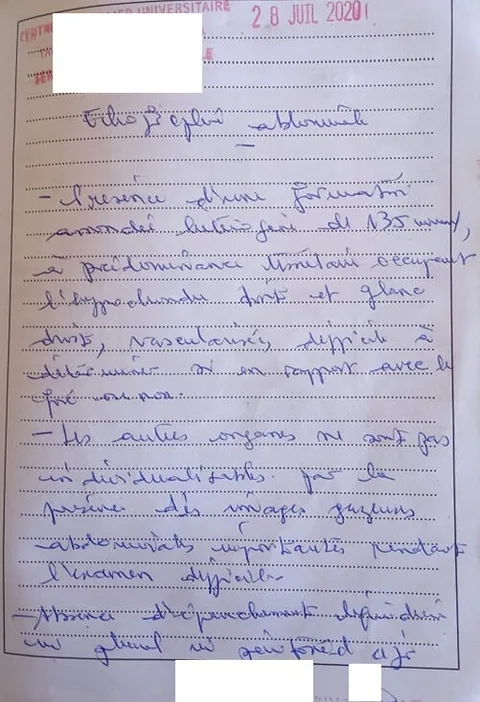 UNIVERSITAIRE
28 JUIL 2020
Echographie abdominale
- Présence d'une formation
arrondie hétérogène de 135 mm,
à prédominance tissulaire occupant
l'hypochondre droit et flanc
droit, vascularisée, difficile à
déterminer si en rapport avec le
foie ou non.
- Les autres organes ne sont pas
individualisables par la
présence des images gazeuses
abdominales importantes rendant
l'examen difficile.
- Absence d'épanchement liquidien
ni pleural ni